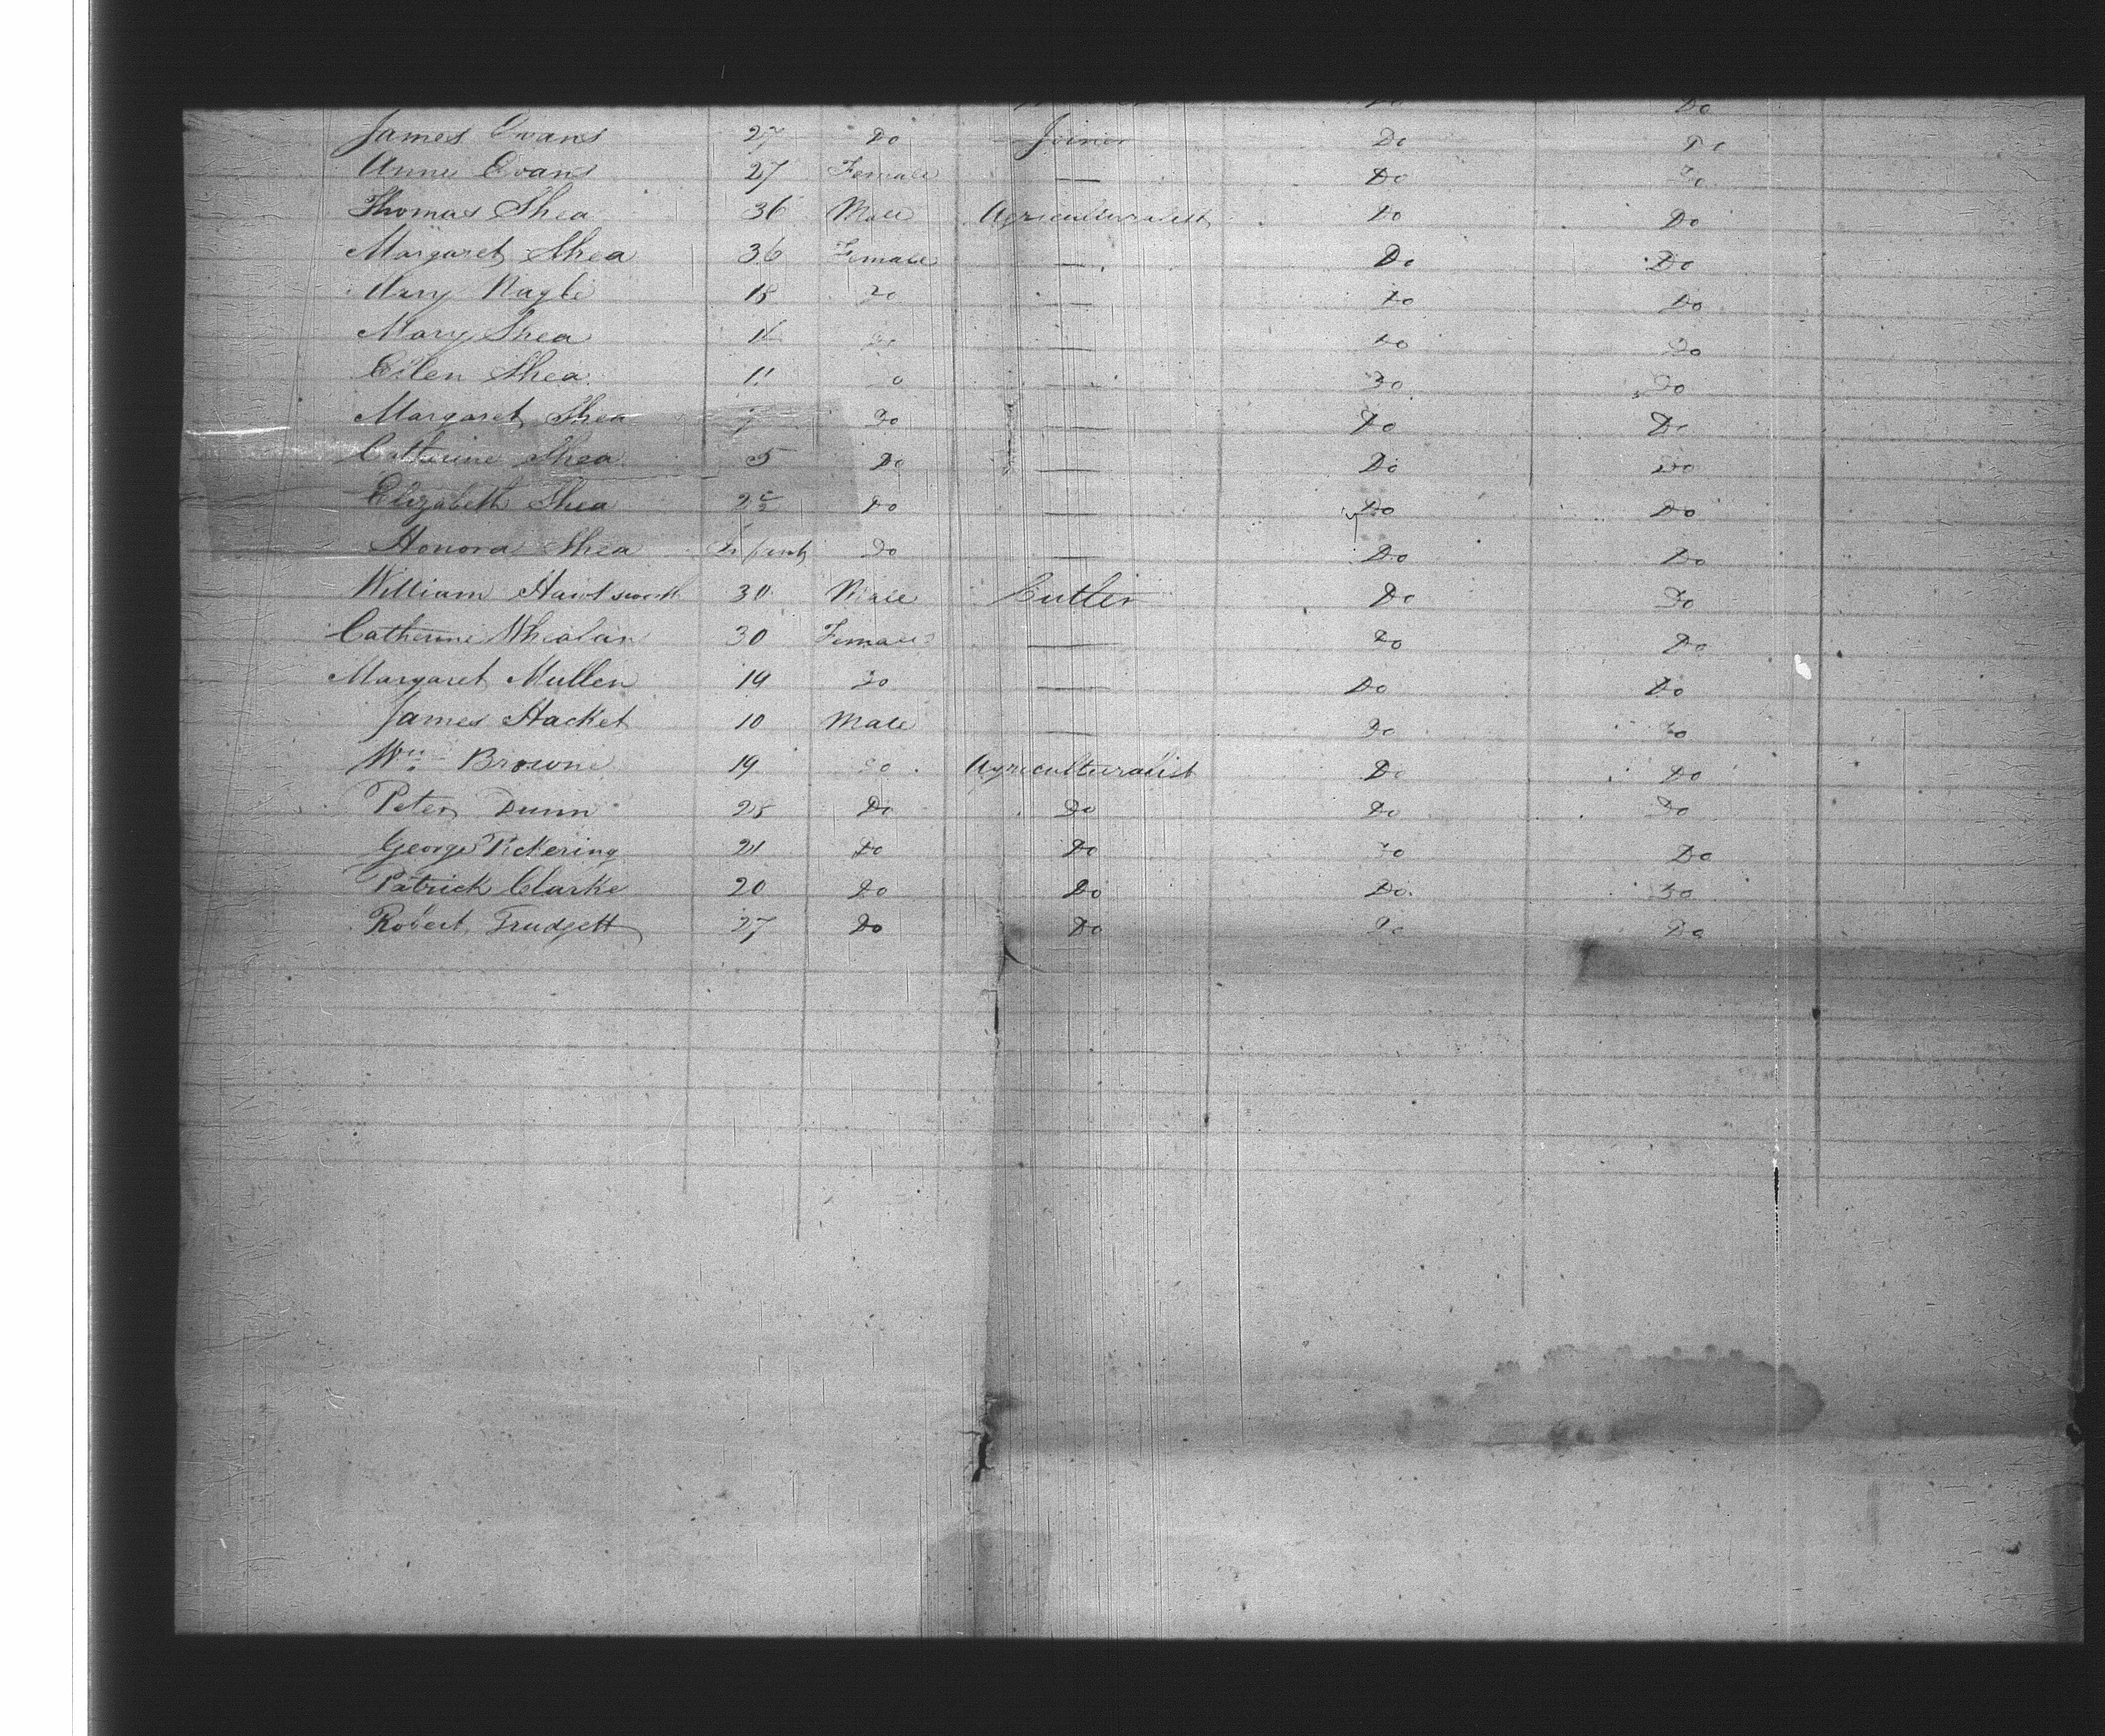 Do
James Evans 27 Do Joiner Do Do
Anne Evans 27 Female — Do Do
Thomas Shea 36 Male Agriculturalist Do Do
Margaret Shea 36 Female — Do Do
Mary Nagle 18 Do — Do Do
Mary Shea Do — Do Do
Eilen Shea 11 Do — Do Do
Margaret Shea 7 Do — Do Do
Catherine Shea 5 Do — Do Do
Elizabeth Shea Do — Do Do
Honora Shea Infant Do — Do Do
William 30 Male Cutler Do Do
Catherine Whealan 30 Female — Do Do
Margaret Mullen 19 Do — Do Do
James Hacket 10 Male — Do Do
Wm Browne 19 Do Agriculturalist Do Do
Peter Dunn 25 Do Do Do Do
George Pickering 21 Do Do Do Do
Patrick Clarke 20 Do Do Do Do
Robert Trudgett 27 Do Do Do Do